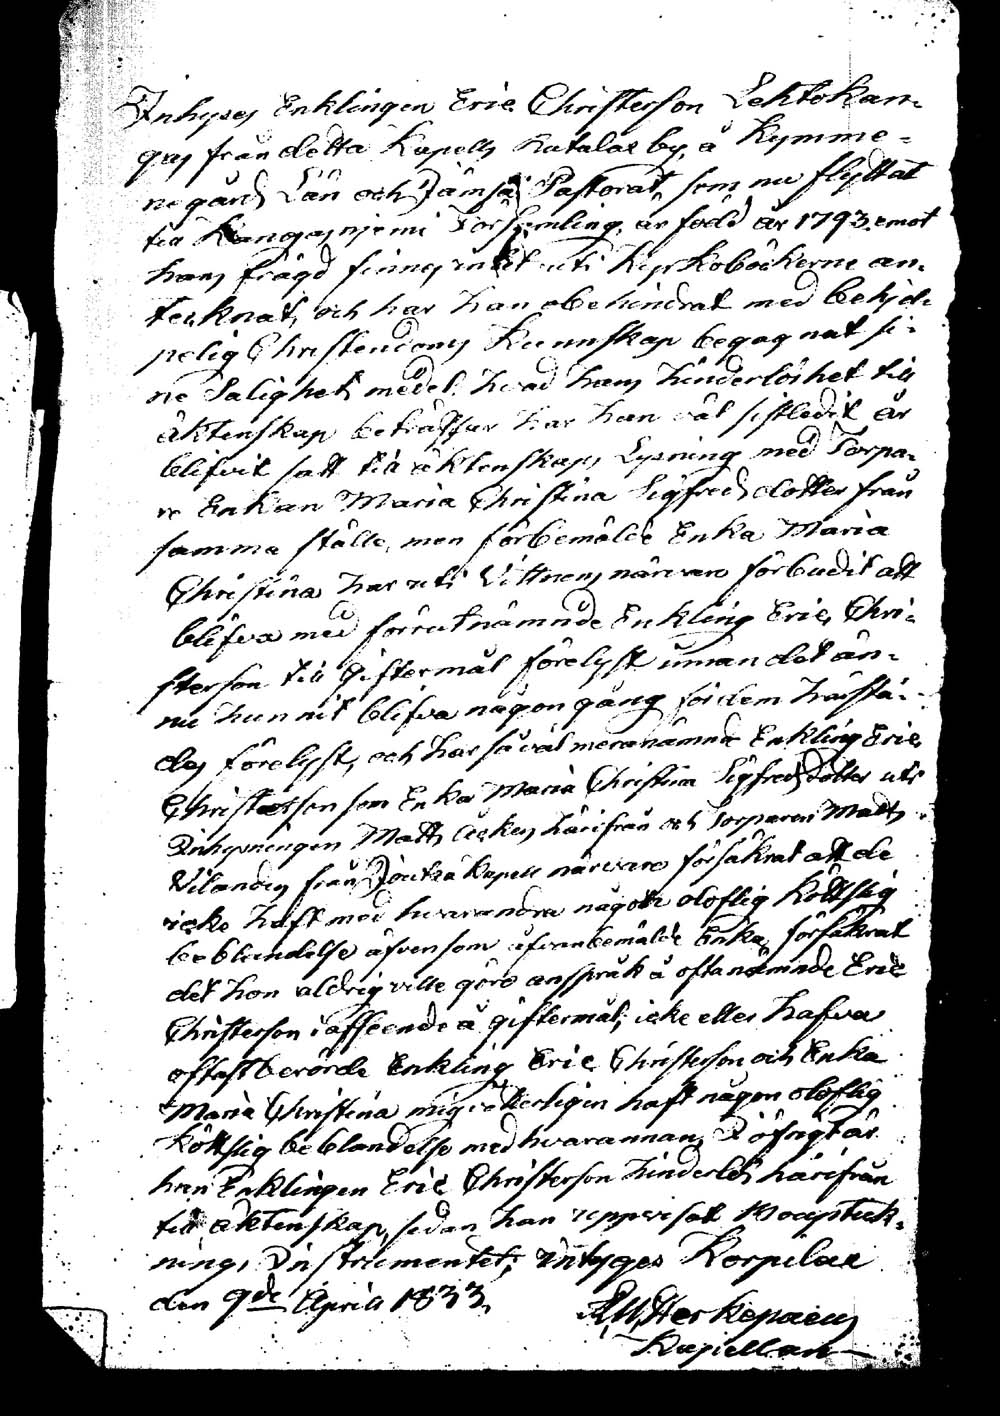 Inhyses Enklingen Eric Christerson Lehtokan-
gas från detta Kapells Rutalax by, å Kymme-
negårds Län och Jämsä Pastorat, som nu flyttat
till Kangasniemi Församling, är född år 1793 emot
hans frägd finnes intet uti Kyrkoböckerne an-
tecknat, och har han obehindrat med behje-
pelig Christendoms Kunnskap begagnat si-
ne Salighets medel. hvad hans hinderlöshet till
äktenskap beträffar har han väl sistledit år
blifvit satt till äktenskaps Lysning med Torpa-
re Enkan Maria Christina Sigfredsdotter från
samma ställe, men förbemälde Enka Maria
Christina har uti Vittnens närvaro förbudit att
blifva med förrutnämnde Enkling Eric Chri-
sterson till giftermål förelyst innan det än-
nu hunnit blifva någon gång för dem härstä-
des förelyst, och har såväl meranämnde Enkling Eric
Christerson som Enka Maria Christina Sigfredsdotter uti
Inhysningen Matts härifrån och Torparen Matts
Vilanders från Joutsa Kapell närvaro försäkrat att de
icke haft med hvarandra någon oloflig köttslig
beblandelse äfvensom ofvanbemälde Enka försäkrat
det hon aldrig ville göra anspråk å oftanämnde Eric
Christerson i afseende å giftermål, icke eller hafva
oftastberörde Enkling Eric Christerson och Enka
Maria Christina mig vetterligen haft någon oloflig
köttslig beblandelse med hvarannan, I öfrigt är
han Enklingen Eric Christerson hinderlös härifrån
till äktenskap, sedan han uppvisat
nings Instrumentet; intygas Korpilax
den 9de April 1833.
Kapellan